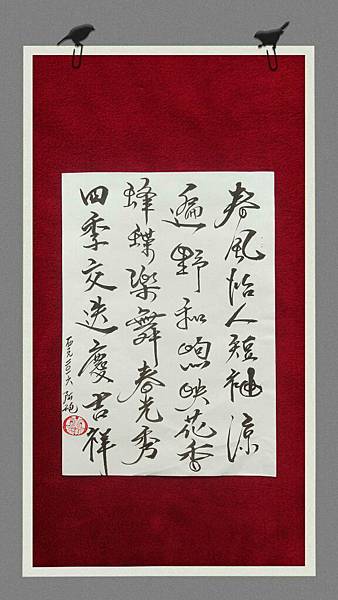 春風怡人短袖涼
遍野和煦映花香
蜂蝶樂舞春光秀
四季交迭慶吉祥